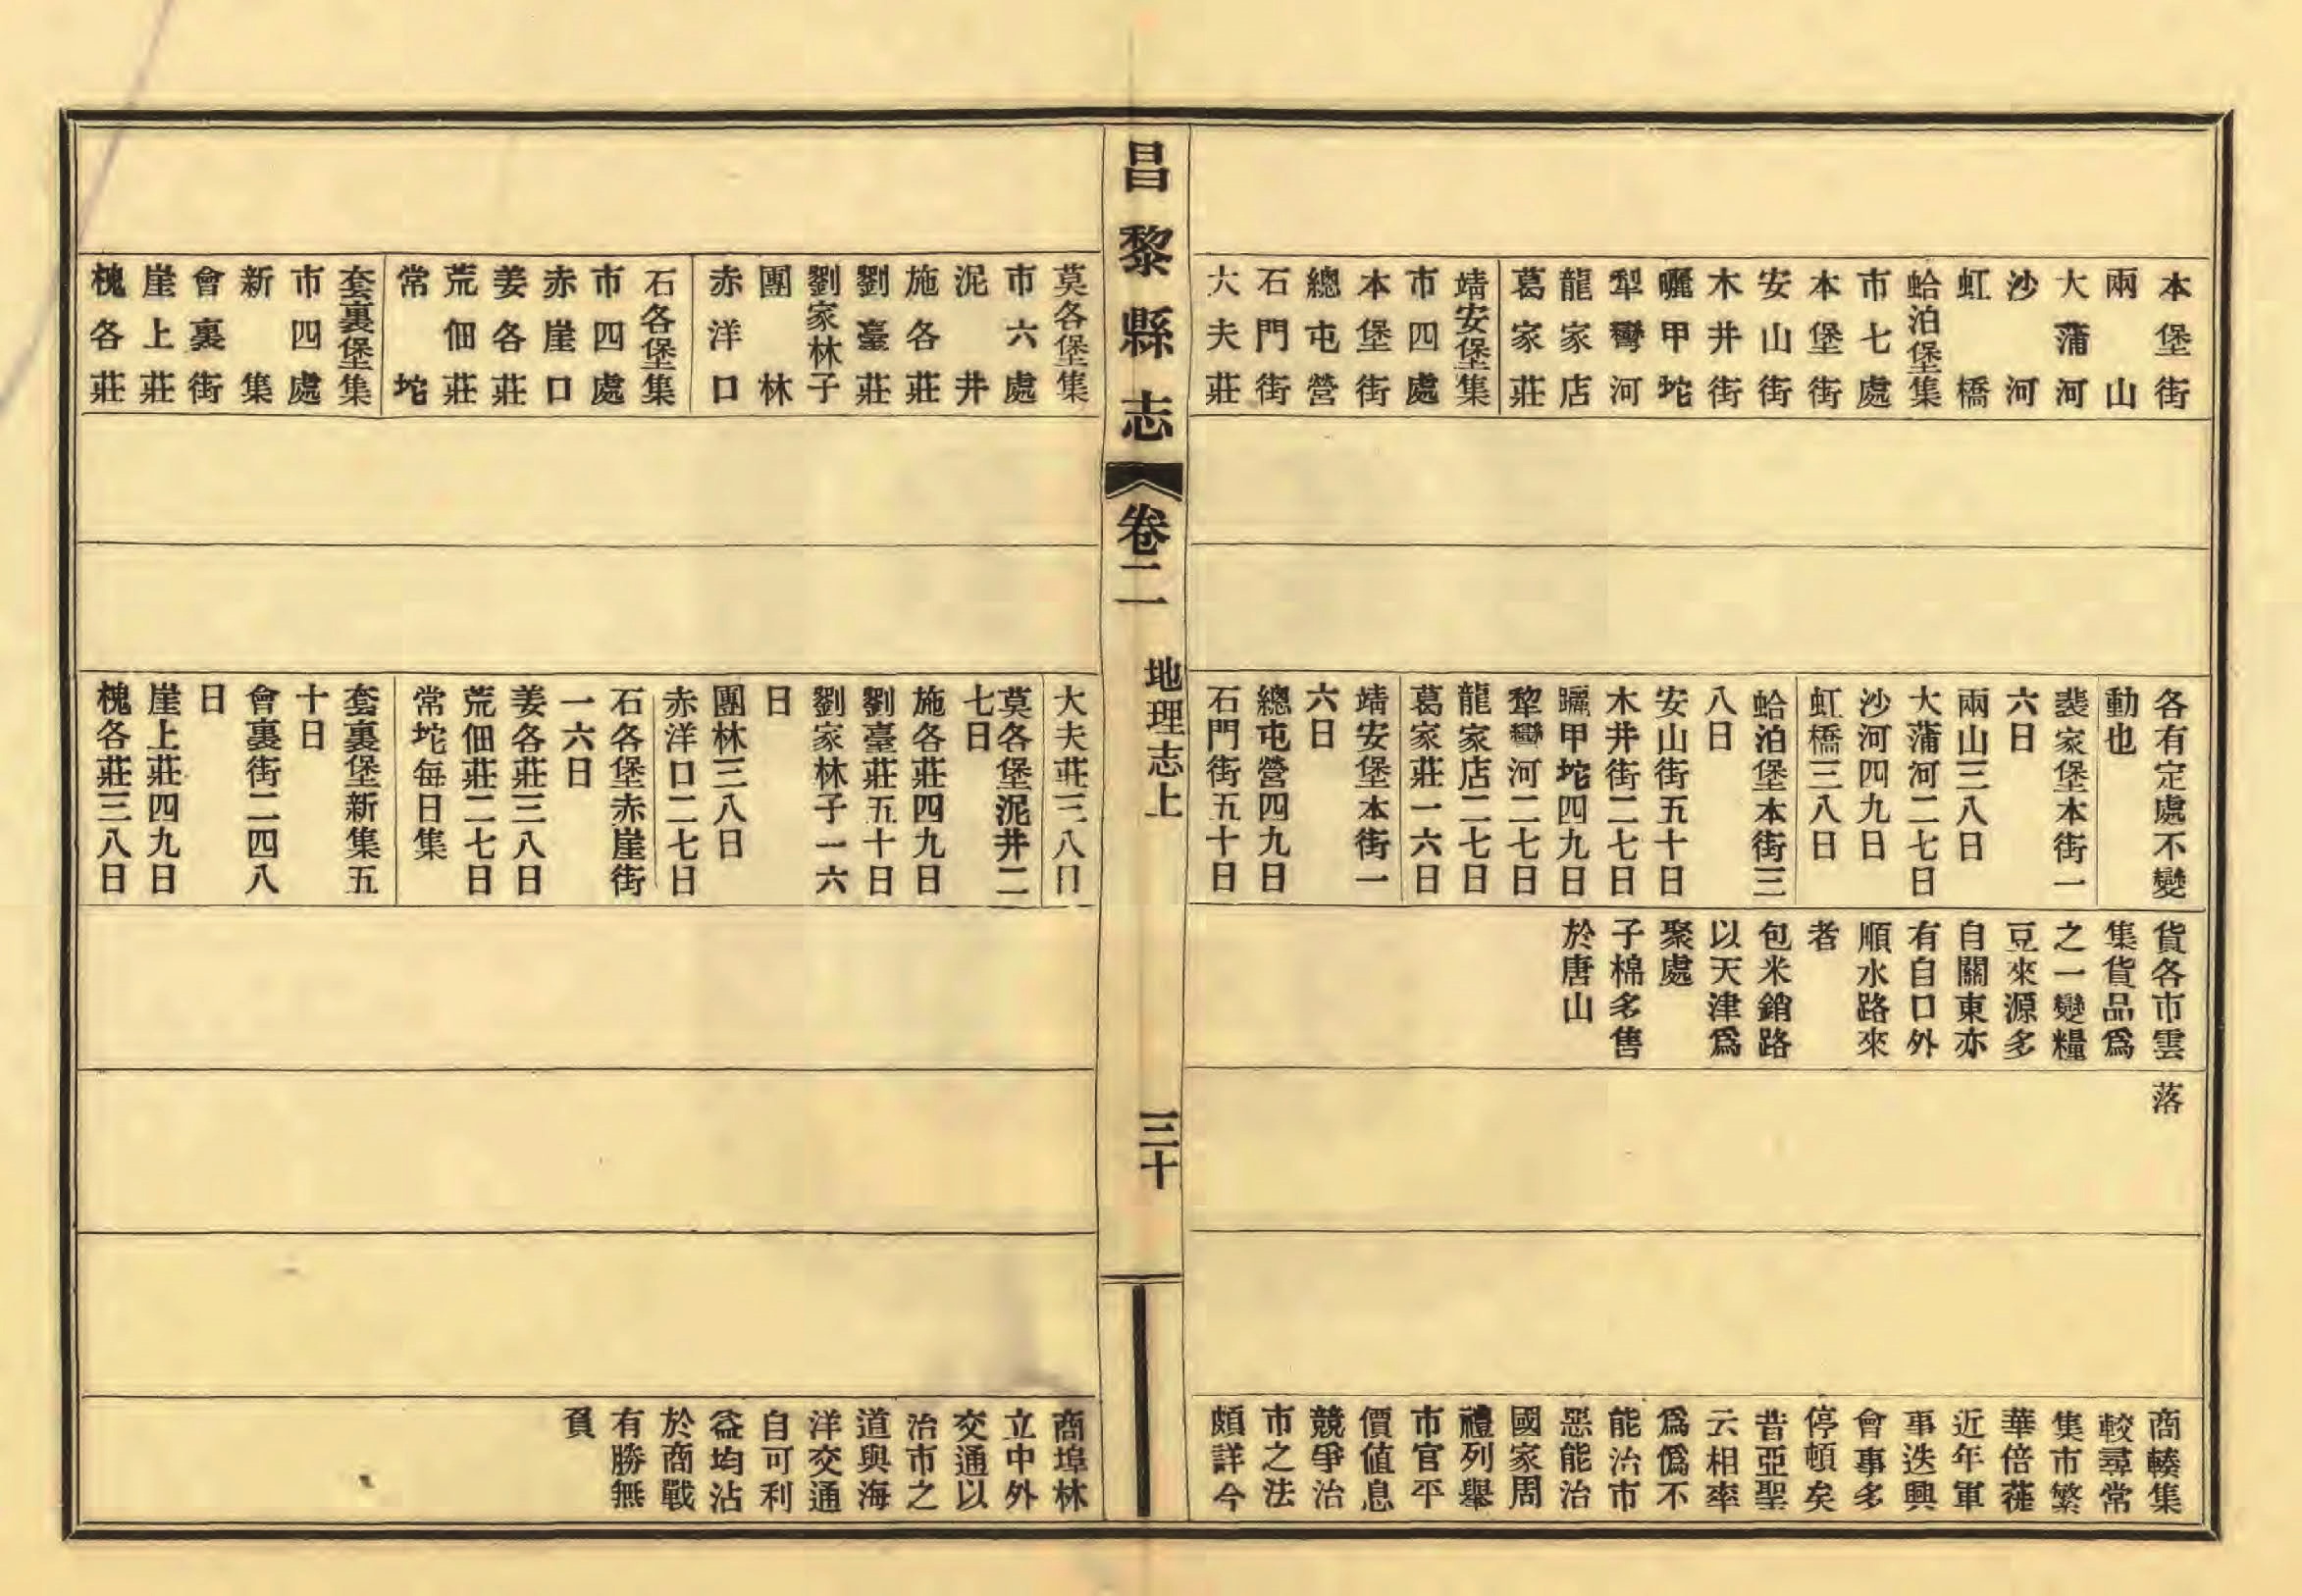 本堡街
兩山
大蒲河
沙河
虹橋
蛤泊堡集
市七處
本堡街
安山街
木井街
曬甲坨
犁彎河
龍家店
葛家莊
靖安堡集
市四處
本堡街
總屯營
石門街
大夫莊
各有定處不變
動也
裴家堡本街一
六日
兩山三八日
大蒲河二七日
沙河四九日
虹橋三八日
蛤泊堡本街三
八日
安山街五十日
木井街二七日
曬甲坨四九日
犂彎河二七日
龍家店二七日
葛家莊一六日
靖安堡本街一
六日
總屯營四九日
石門街五十日
貨各市雲
集貨品爲
之一變糧
豆來源多
自關東亦
有自口外
順水路來
者
包米銷路
以天津爲
聚處
子棉多售
於唐山
落
商輳集
較尋常
集市繁
華倍蓰
近年軍
事迭興
會事多
停頓矣
昔亞聖
云相率
爲僞不
能治市
惡能治
國家周
禮列舉
市官平
價值息
競爭治
市之法
頗詳今
昌黎縣志
卷二
地理志上
三十
莫各堡集
市六處
泥井
施各莊
劉臺莊
劉家林子
團林
赤洋口
石各堡集
市四處
赤崖口
姜各莊
荒佃莊
常坨
套裏堡集
市四處
新集
會裏街
崖上莊
槐各莊
大夫莊三八日
莫各堡泥井二
七日
施各莊四九日
劉臺莊五十日
劉家林子一六
日
團林三八日
赤洋口二七日
石各堡赤崖街
一六日
姜各莊三八日
荒佃莊二七日
常坨每日集
套裏堡新集五
十日
會裏街二四八
日
崖上莊四九日
槐各莊三八日
商埠林
立中外
交通以
治市之
道與海
洋交通
自可利
益均沾
於商戰
有勝無
負